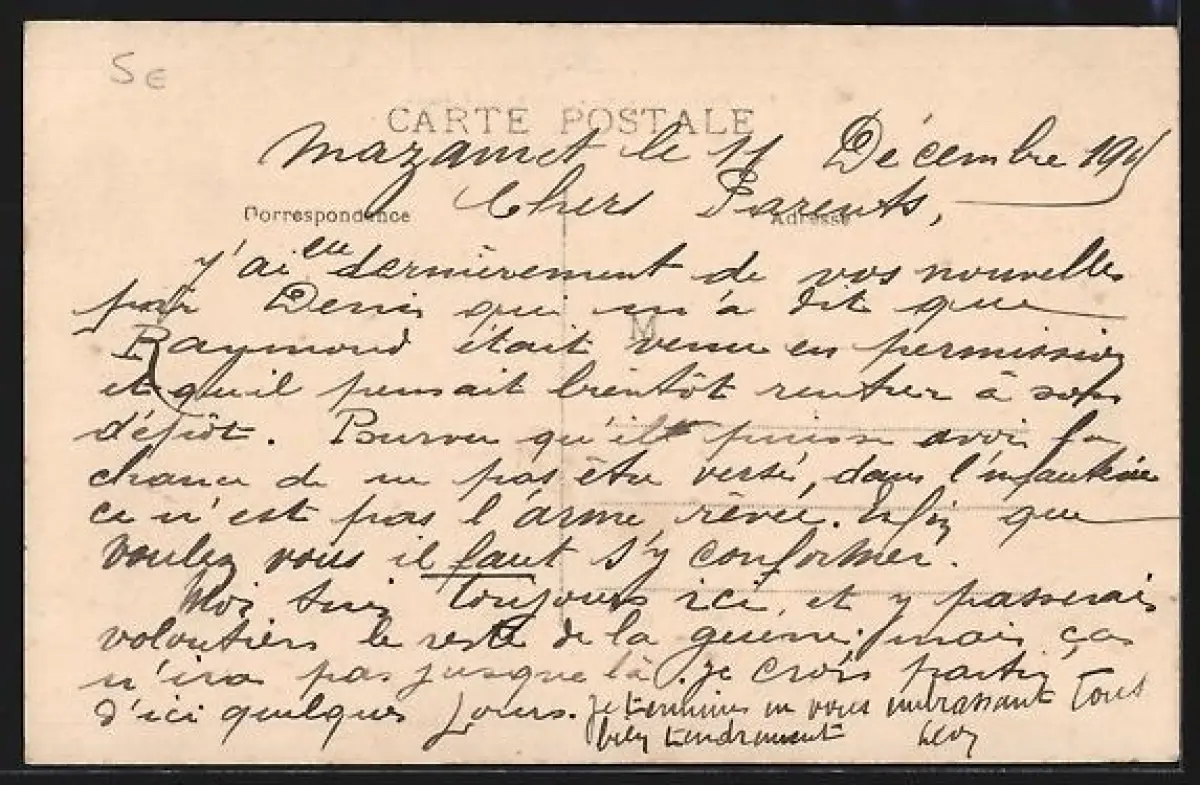 5 €
CARTE POSTALE
Mazamet, le 11 Décembre 1915
Correspondance
Chers Parents,
Adresse
J'ai eu dernièrement de vos nouvelles
par Denis qui m'a dit que
M
Raymond était venu en permission
et qu'il pensait bientôt rentrer à son
dépôt. Purvu qu'il puisse avoir la
chance de ne pas être versé, dans l'infanterie
ce n'est pas l'arme rêvée. Enfin que
voulez vous il faut s'y conformer.
Moi suis toujours ici, et y passerais
volontiers le reste de la guerre, mais ça
n'ira pas jusque là. Je crois partir
d'ici quelques jours. Je termine en vous embrassant Tous
bien tendrement